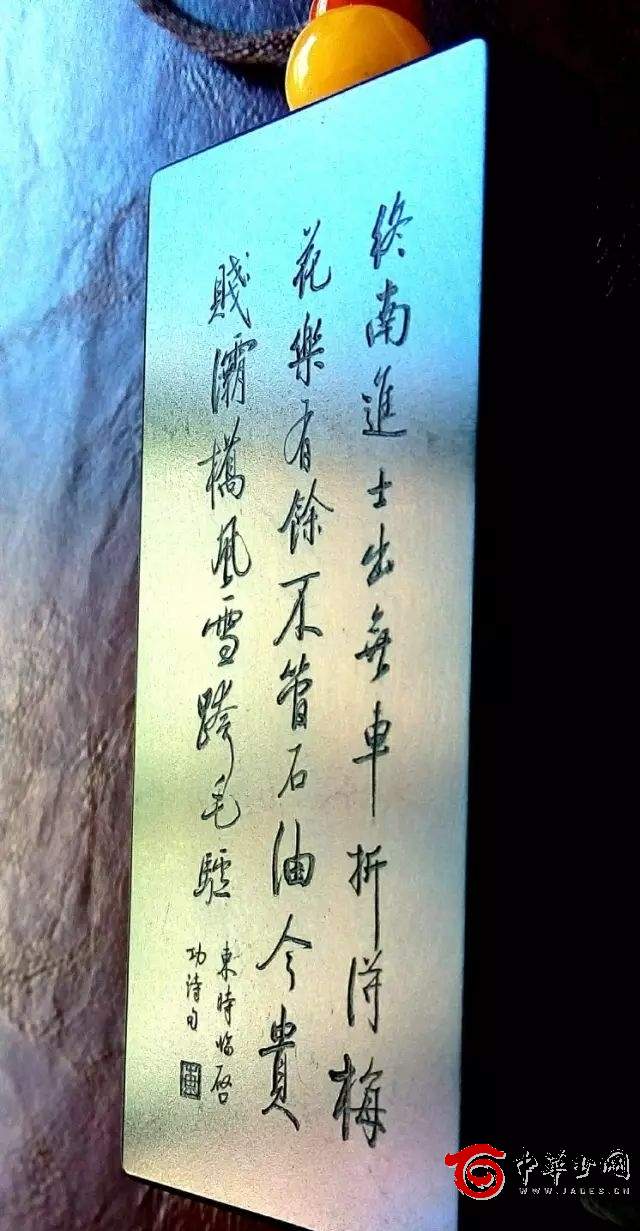 終南進士出無車折得梅
花樂有餘不管石油今貴
賤灞橋風雪跨毛驢
東時臨啓
功詩句
中华玉网
WWW.JADES.CN